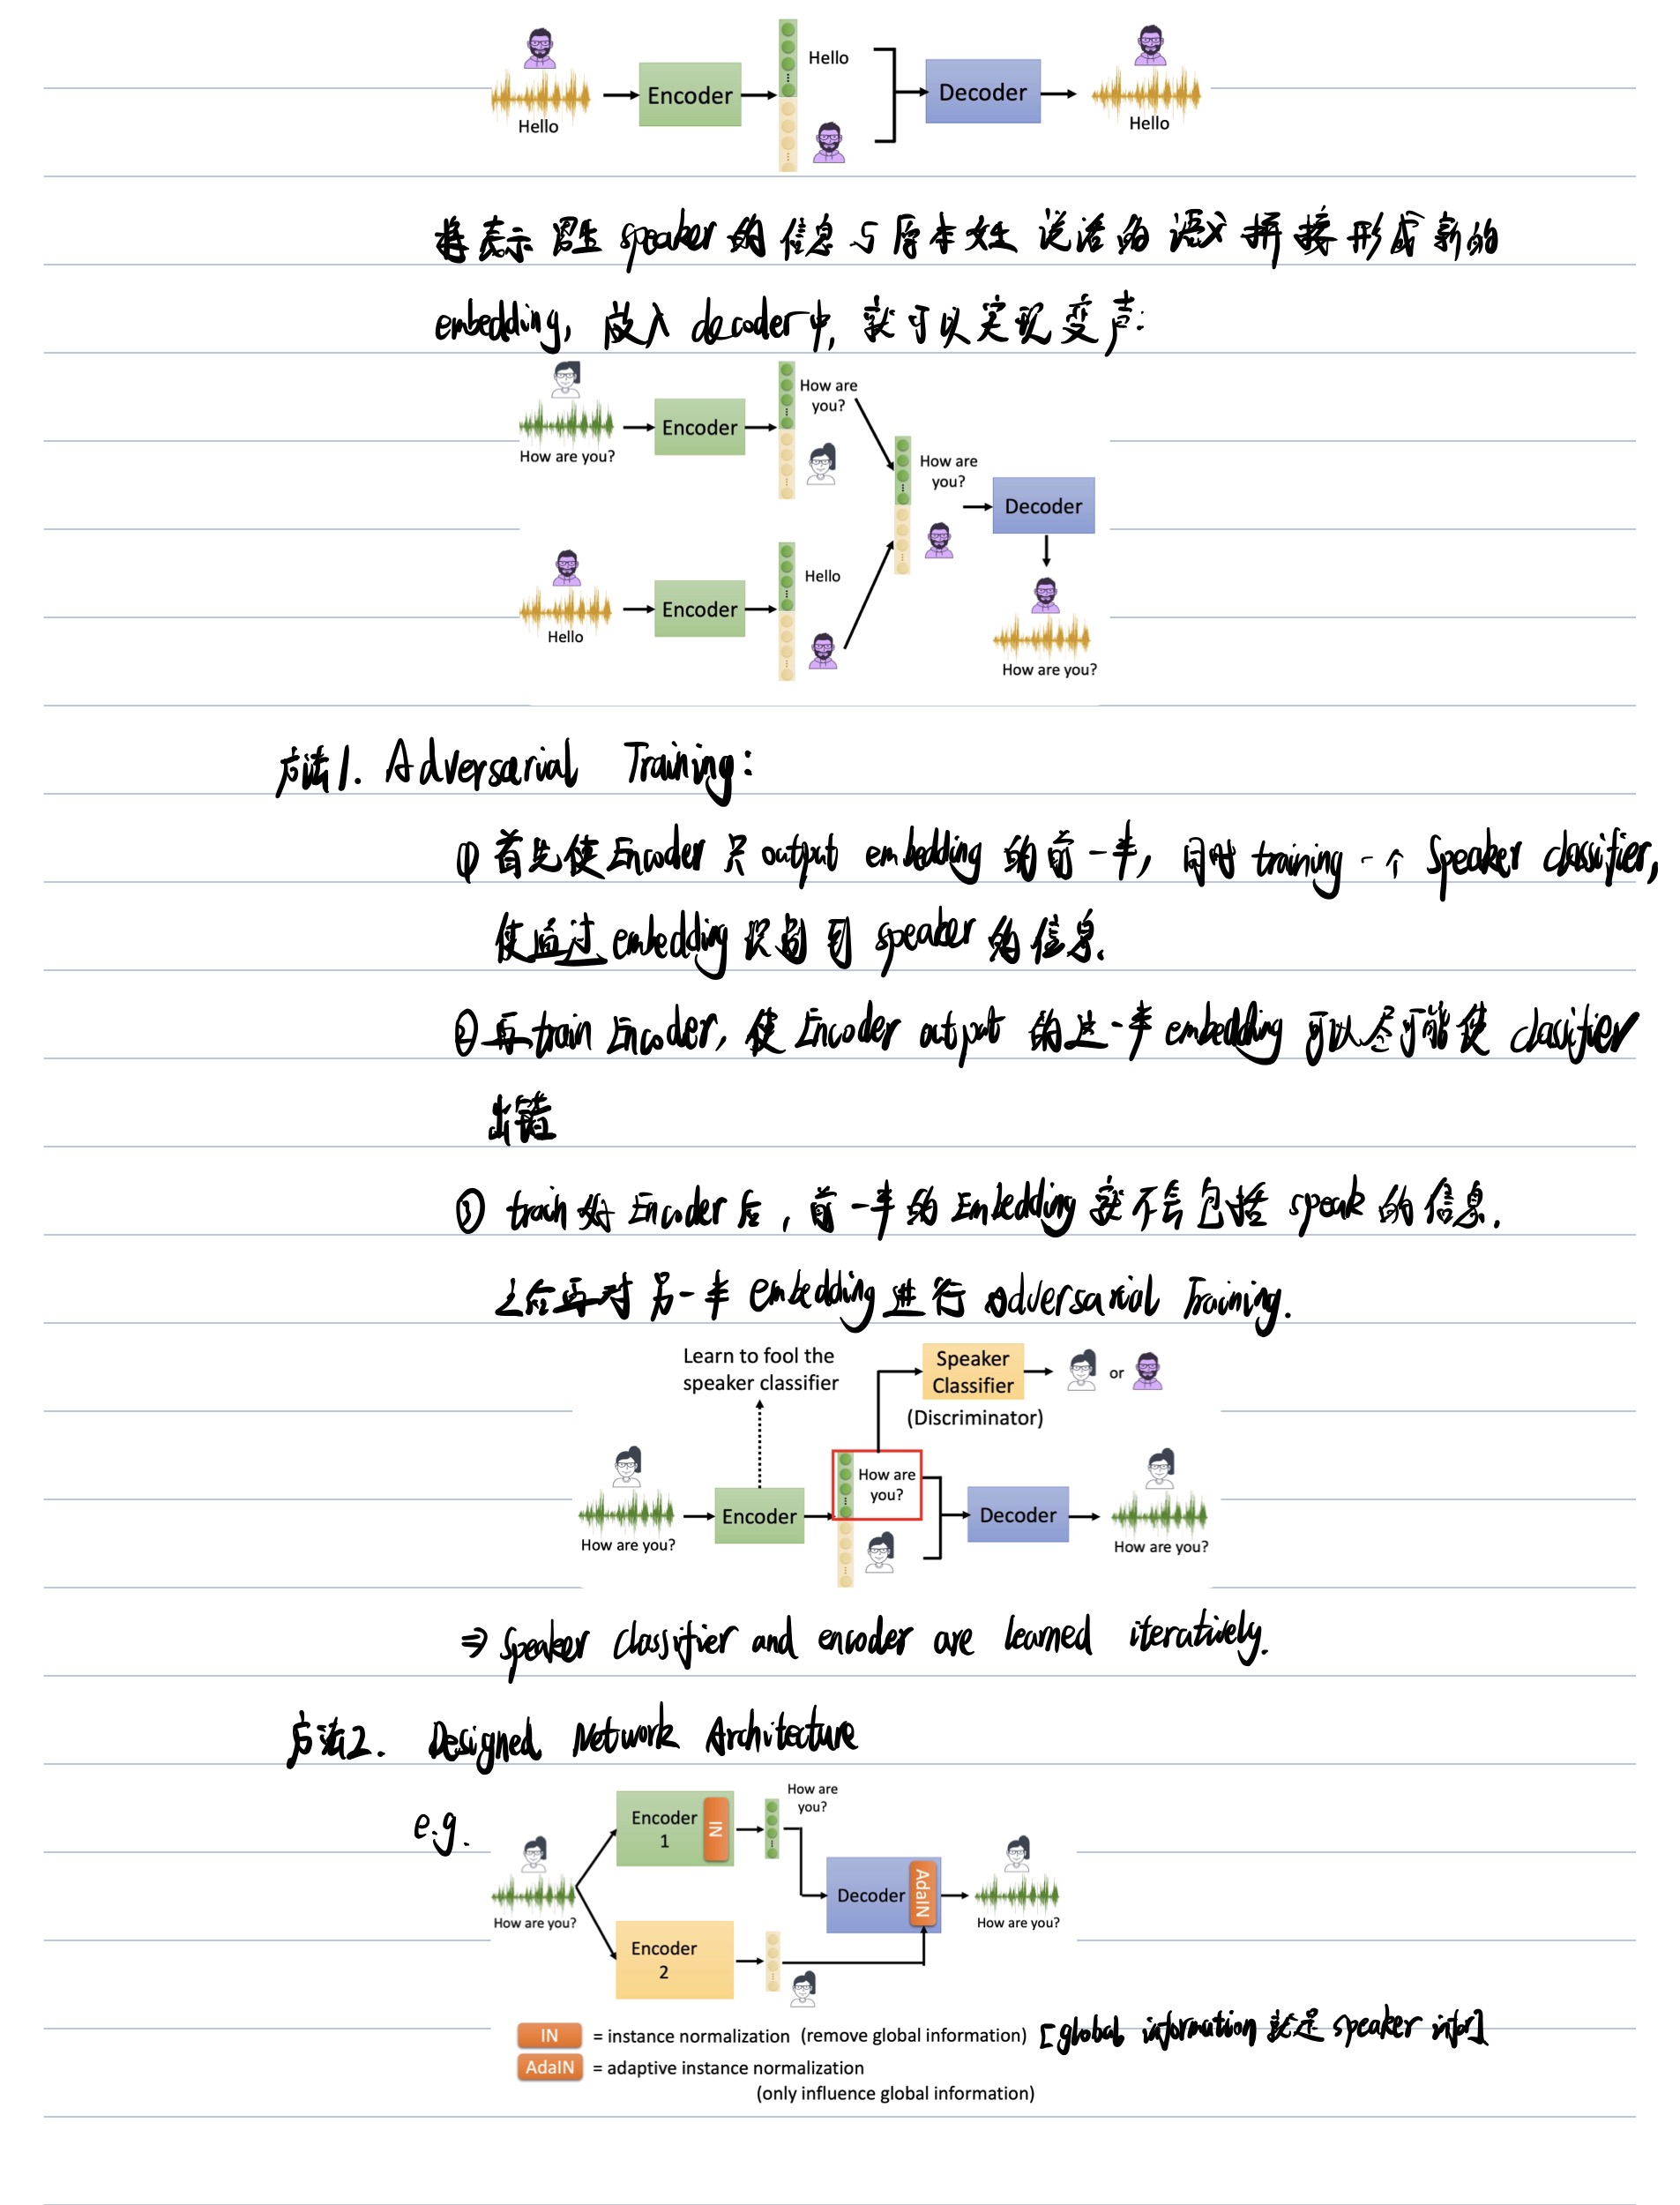 Hello
Encoder
Hello
Decoder
Hello
将表示男生 speaker 的信息与原本女生 说话的语义拼接形成新的
embedding, 放入 decoder中, 就可以实现变声:
How are you?
Encoder
How are
you?
How are
you?
Decoder
Hello
Encoder
Hello
How are you?
方法1. Adversarial Training:
① 首先使Encoder 只 output embedding 的前一半, 同时 training 一个 Speaker classifier,
使通过 embedding 识别到 speaker 的信息.
② 再 train Encoder, 使 Encoder output 的这一半 embedding 可以尽可能使 classifier
出错
③ train 好 Encoder 后, 前一半的 Embedding 就不会包括 speak 的信息.
之后再对另一半 embedding 进行 Adversarial Training.
Learn to fool the
speaker classifier
Speaker
Classifier
or
(Discriminator)
How are you?
Encoder
How are
you?
Decoder
How are you?
⇒ speaker classifier and encoder are learned iteratively.
方法2. Designed Network Architecture
e.g.
How are you?
Encoder
1
IN
How are
you?
Decoder
AdaIN
How are you?
Encoder
2
IN = instance normalization (remove global information) [global information 就是 speaker infor]
AdaIN = adaptive instance normalization
(only influence global information)